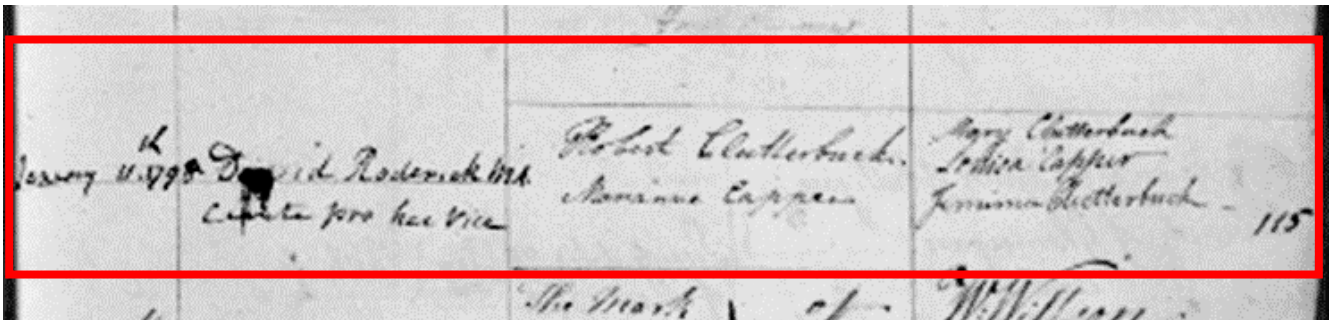 th
January 11. 1798 David Roderick M.A.
Curate pro hac vice
Robert Clutterbuck.
Marianne Capper
Mary Clutterbuck
Louisa Capper
Jemima Clutterbuck
115
The Mark of